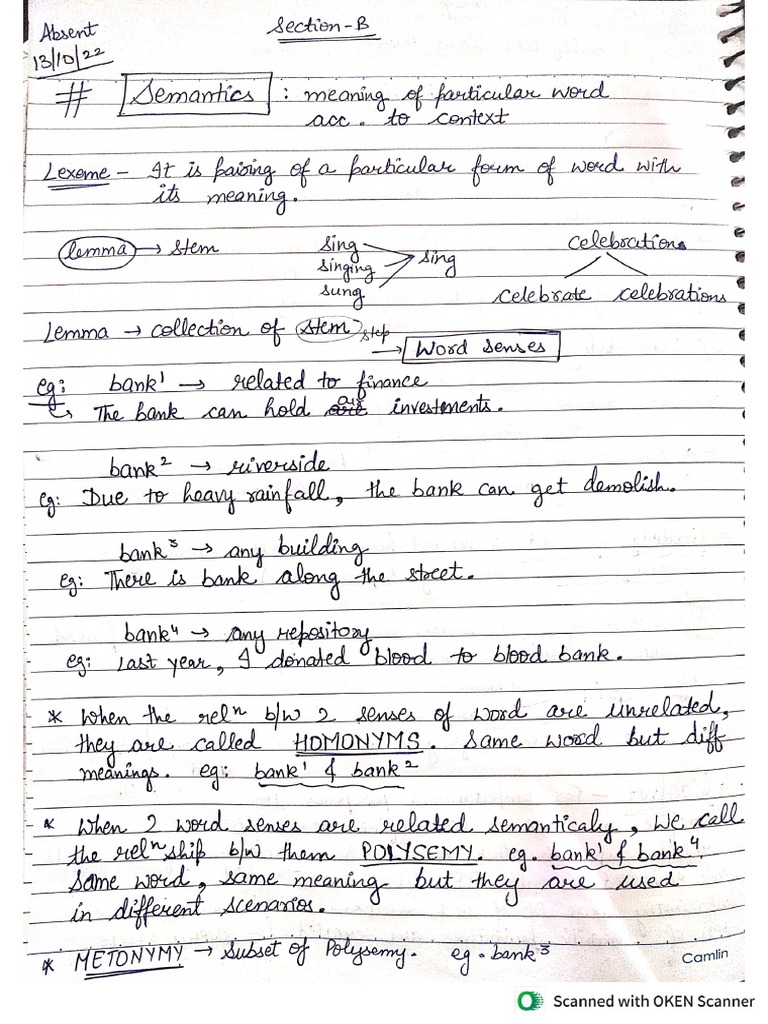 Absent
13/10/22
Section-B
# Semantics : meaning of particular word
acc. to context
Lexeme - It is pairing of a particular form of word with
its meaning.
lemma → stem
sing
singing
sung
sing
celebrations
celebrate celebrations
Lemma → collection of stem step
→ Word senses
eg: bank¹ → related to finance
↳ The bank can hold are investments.
bank² → riverside
eg: Due to heavy rainfall, the bank can get demolish.
bank³ → any building
eg: There is bank along the street.
bank⁴ → any repository
eg: Last year, I donated blood to blood bank.
* When the relⁿ b/w 2 senses of word are unrelated,
they are called HOMONYMS. Same word but diff
meanings. eg: bank¹ & bank²
* When 2 word senses are related semanticaly, we call
the relⁿship b/w them POLYSEMY. eg. bank¹ & bank⁴.
Same word, same meaning but they are used
in different scenarios.
* METONYMY → Subset of Polysemy. eg. bank³
Camlin
Scanned with OKEN Scanner